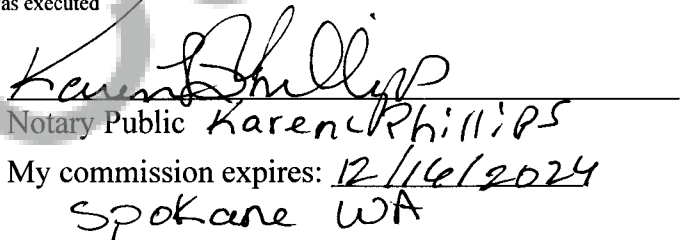 as executed
Karen L Phillips
Notary Public Karen L Phillips
My commission expires: 12/16/2024
Spokane WA